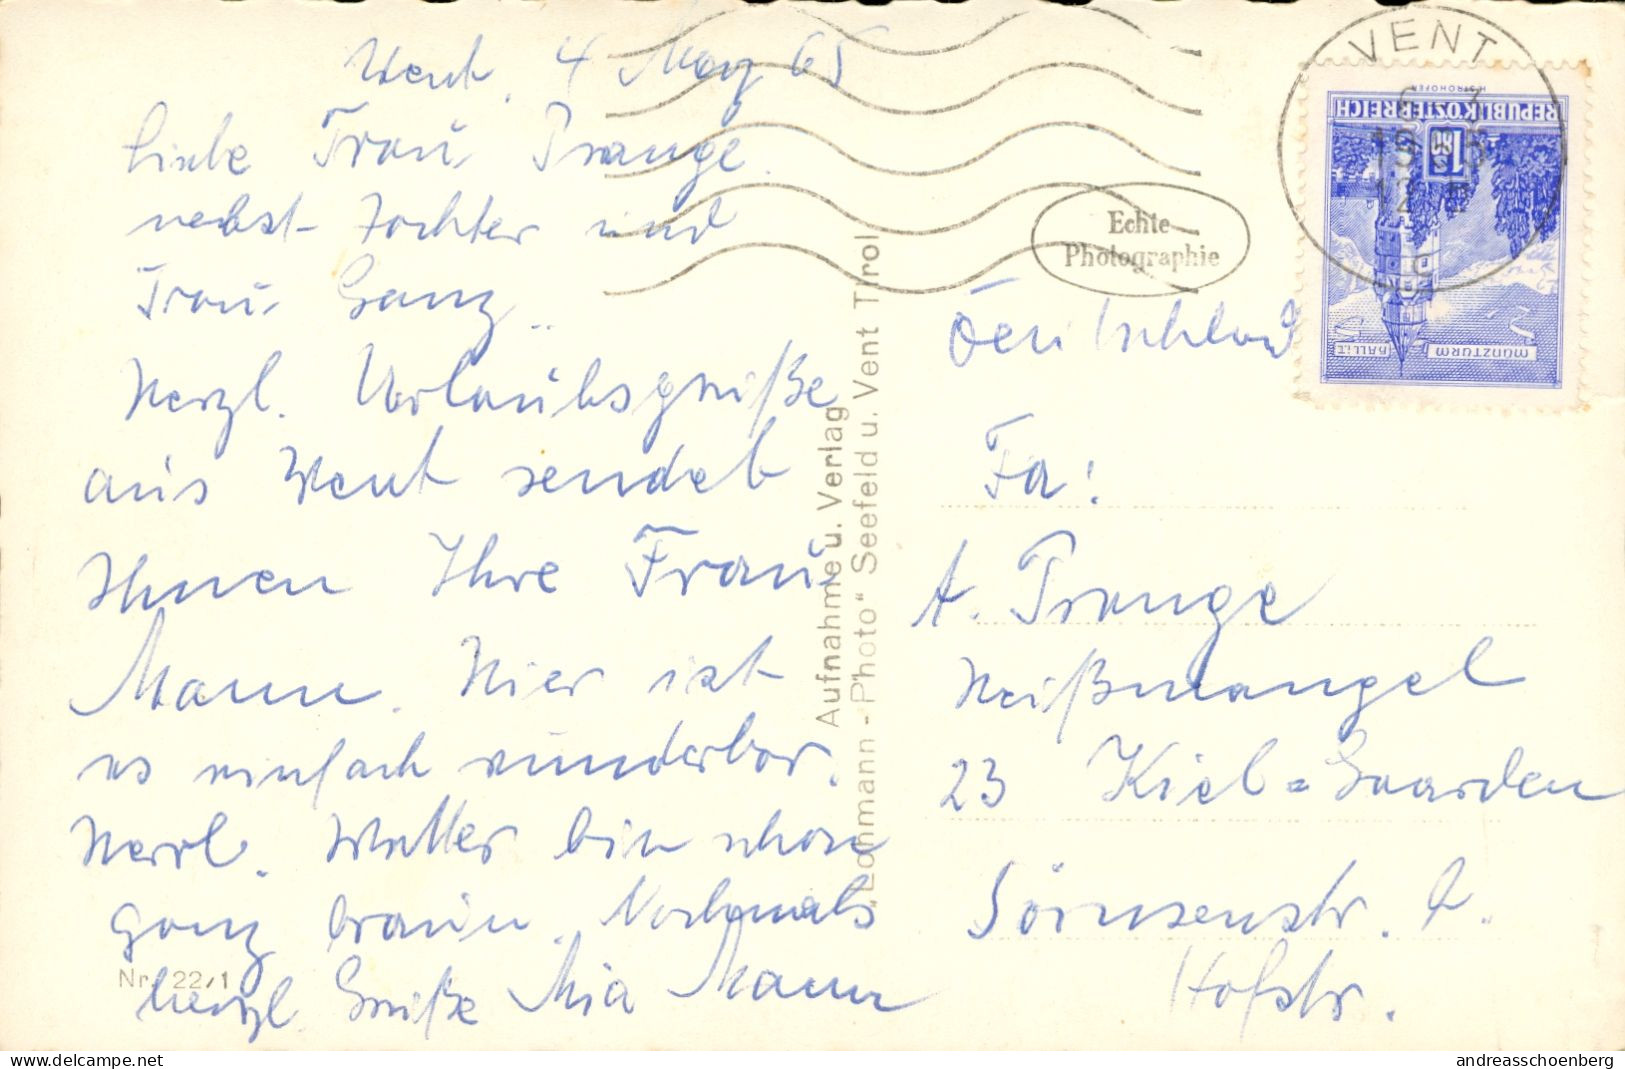 Vent, 4 März 65
Liebe Frau Prange
nebst Tochter und
Frau Ganz..
Herzl. Urlaubsgrüße
aus Vent sendet
Ihnen Ihre Frau
Mann. Hier ist
es einfach wunderbar.
Herrl. Wetter bin schon
ganz braun. Nochmals
herzl. Grüße Mia Mann
Nr. 22/1
Aufnahme u. Verlag
„Lohmann-Photo“ Seefeld u. Vent Tirol
Echte
Photographie
VENT
12
c
REPUBLIK ÖSTERREICH
H. STROHOFER
S 1.80
MÜNZTURM
HALL i.T.
Deutschland
Fa:
A. Prange
Heißmangel
23 Kiel=Gaarden
Sörnsenstr.
Hofstr.
delcampe.net
andreasschoenberg